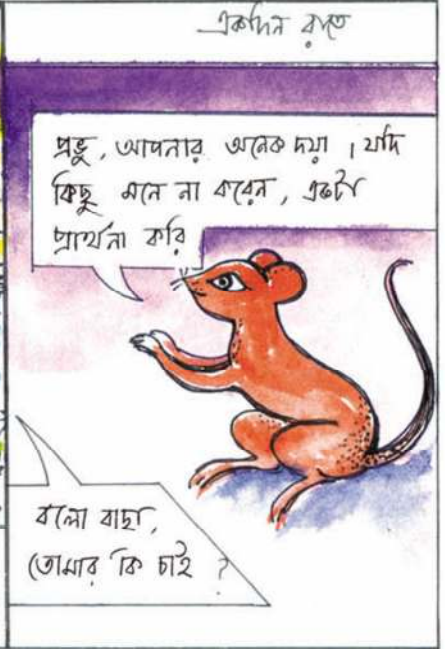 একদিন রাতে
প্রভু, আপনার অনেক দয়া। যদি
কিছু মনে না করেন, একটা
প্রার্থনা করি
বলো বাছা,
তোমার কি চাই ?